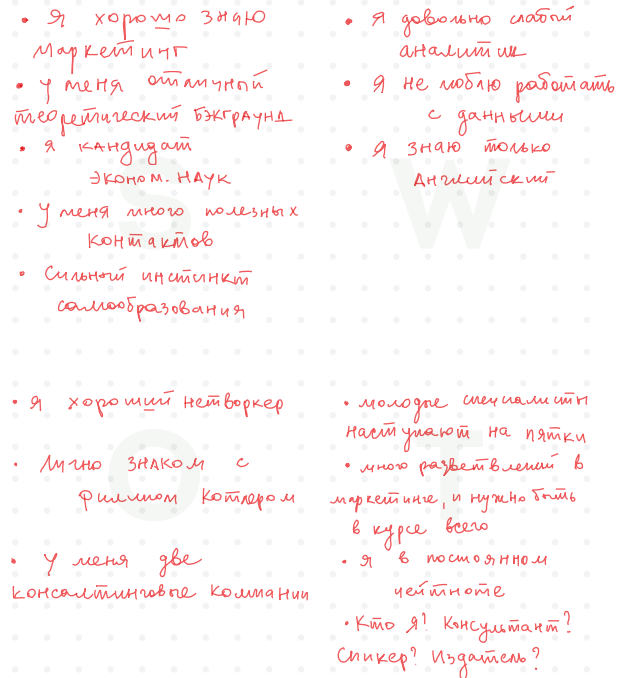 S
• Я хорошо знаю
маркетинг
• У меня отличный
теоретический бэкграунд
• Я кандидат
эконом. наук
• У меня много полезных
контактов
• Сильный инстинкт
самообразования
W
• Я довольно слабый
аналитик
• Я не люблю работать
с данными
• Я знаю только
Английский
O
• Я хороший нетворкер
• Лично знаком с
Филипом Котлером
• У меня две
консалтинговые компании
T
• молодые специалисты
наступают на пятки
• много разветвлений в
маркетинге, и нужно быть
в курсе всего
• Я в постоянном
цейтноте
• Кто я? Консультант?
Спикер? Издатель?